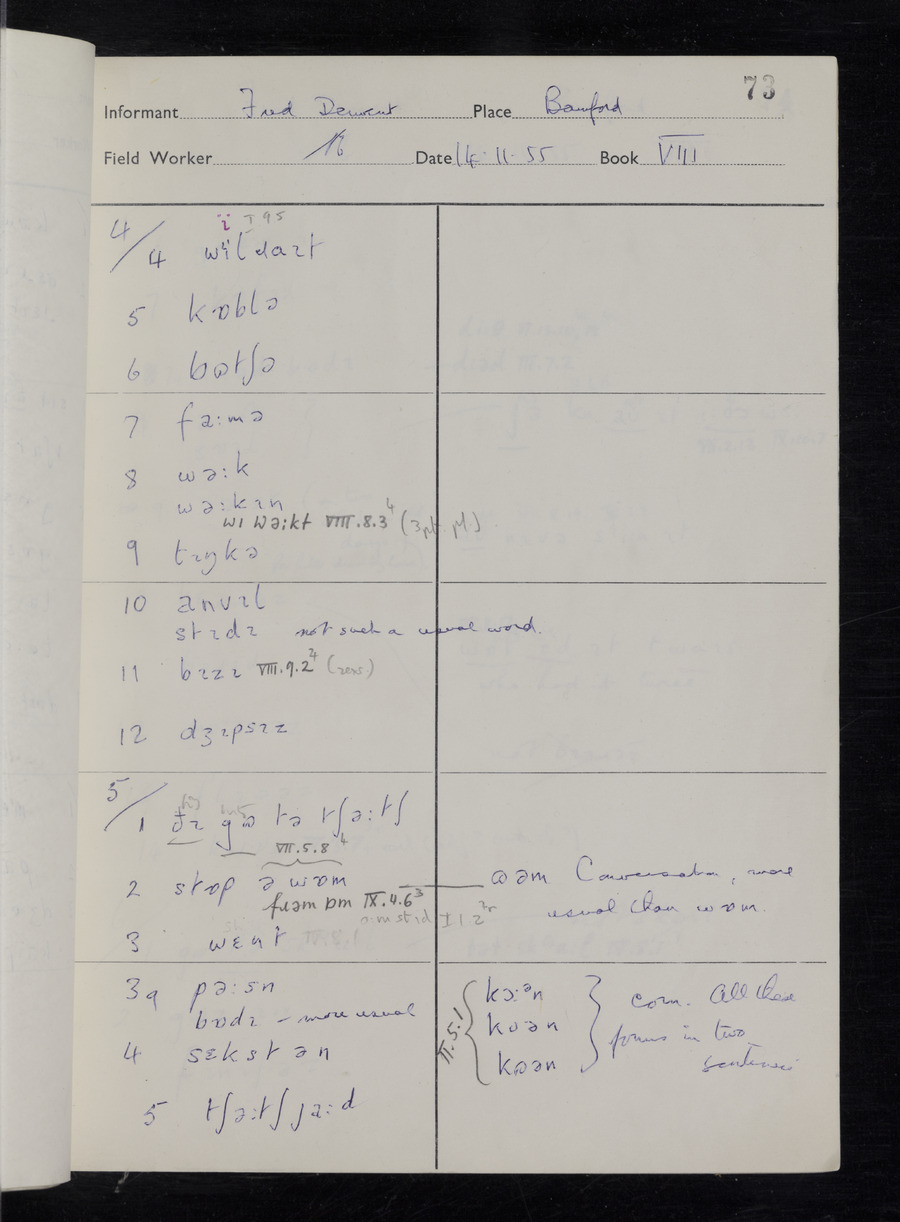 73
Informant Fred Derwent Place Bamford
Field Worker Date 14.11.55 Book VIII
ï I 95
4/4 wïldaɪt
5 kɒblə
6 bʊtʃə
7 fa:mə
8 wə:k
wə:kɪn
wɪ wə:kt VIII.8.3⁴ (3 pt. pl.)
9 tɪŋkə
10 anvɪl
stɪdɪ not such a usual word.
11 bɪzɪ VIII.9.2⁴
12 dʒɪpsɪz
5/1 gʊ tə tʃə:tʃ
VII.5.8⁴
2 stɒp ə wɒm
fɹəm ɒm IX.4.6³
ʊəm Conversation, more
usual than wɒm.
3 wɛnt
3a pa:sn
bɒdɪ – more usual
4 sɛkstən
5 tʃə:tʃ ja:d
II.5.1
kɔ:ən
kʊən
kɒən
corn. All these
forms in two
sentences